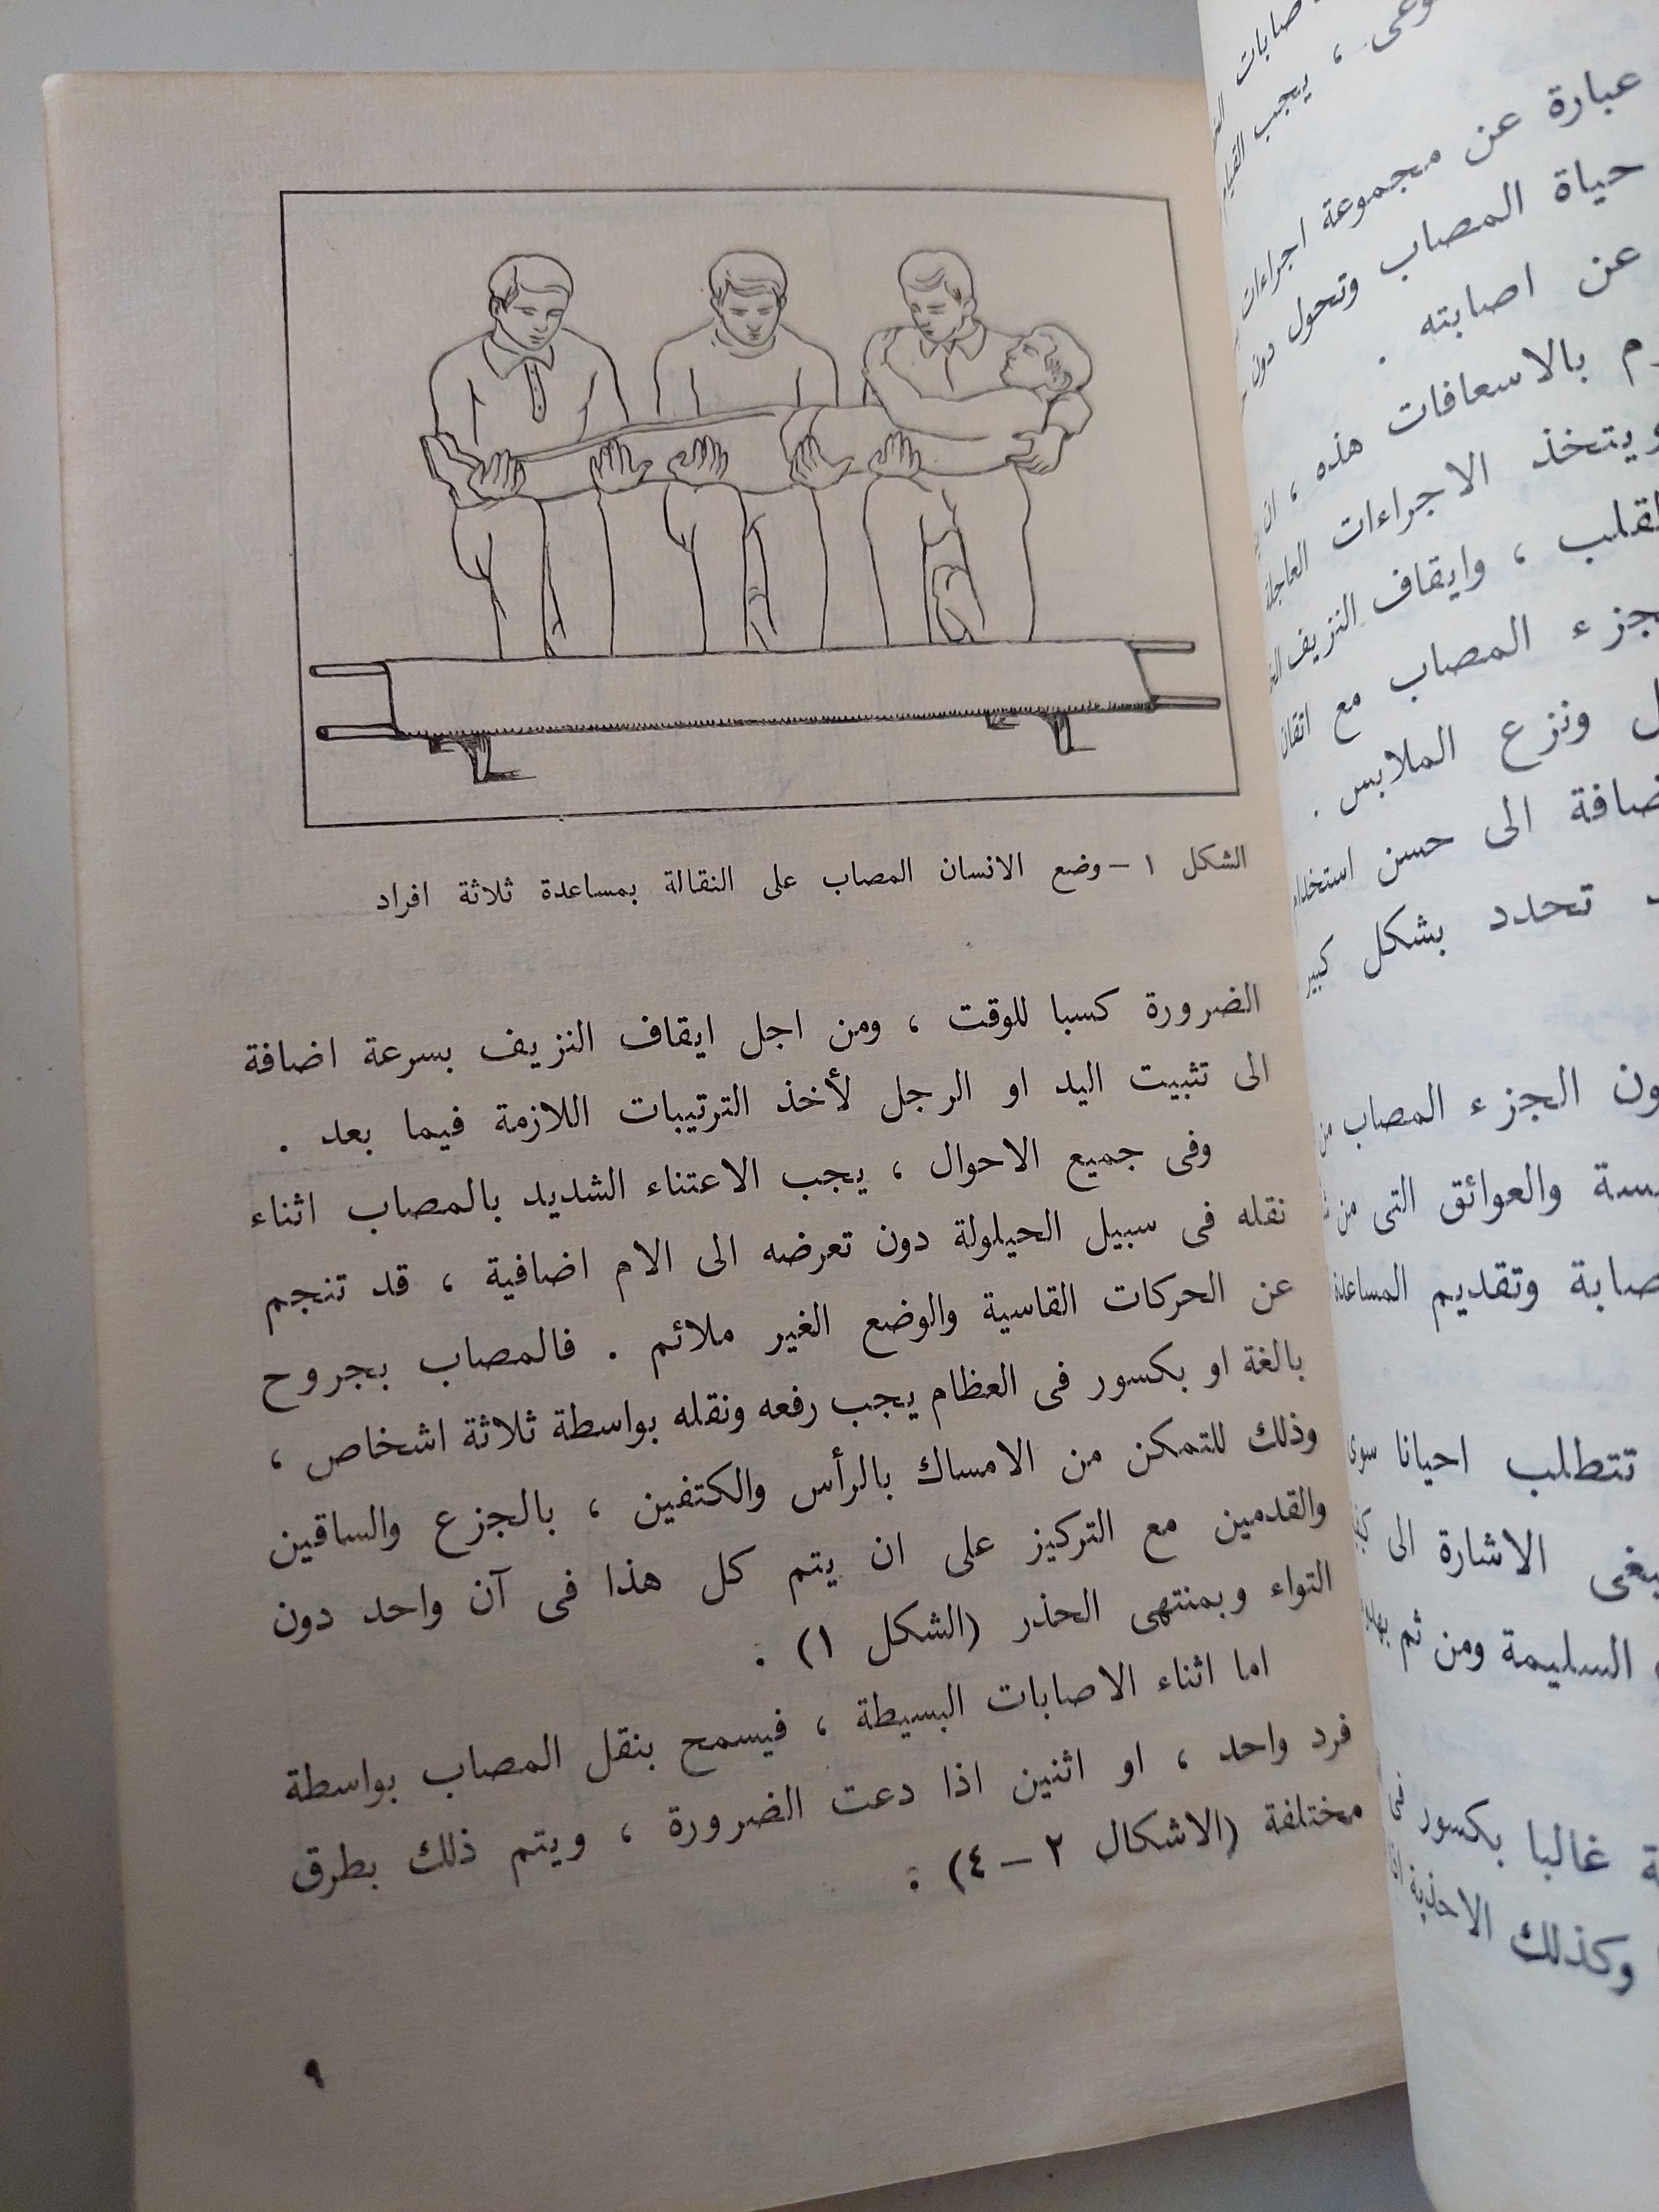 الشكل ١ – وضع الانسان المصاب على النقالة بمساعدة ثلاثة افراد
الضرورة كسبا للوقت ، ومن اجل ايقاف النزيف بسرعة اضافة
الى تثبيت اليد او الرجل لأخذ الترتيبات اللازمة فيما بعد .
وفى جميع الاحوال ، يجب الاعتناء الشديد بالمصاب اثناء
نقله فى سبيل الحيلولة دون تعرضه الى الام اضافية ، قد تنجم
عن الحركات القاسية والوضع الغير ملائم . فالمصاب بجروح
بالغة او بكسور فى العظام يجب رفعه ونقله بواسطة ثلاثة اشخاص ،
وذلك للتمكن من الامساك بالرأس والكتفين ، بالجزع والساقين
والقدمين مع التركيز على ان يتم كل هذا فى آن واحد دون
التواء وبمنتهى الحذر (الشكل ١) .
اما اثناء الاصابات البسيطة ، فيسمح بنقل المصاب بواسطة
فرد واحد ، او اثنين اذا دعت الضرورة ، ويتم ذلك بطرق
مختلفة (الاشكال ٢ – ٤) :
٩
، يجب القيام
عبارة عن مجموعة اجراءات
حياة المصاب وتحول دون
عن اصابته .
بالاسعافات هذه ، ان
ويتخذ الاجراءات العاجلة
القلب ، وايقاف النزيف
المصاب مع اتقان
ونزع الملابس .
الى حسن استخدام
تحدد بشكل كبير
الجزء المصاب من
والعوائق التى من
وتقديم المساعدة
تتطلب احيانا سوى
الاشارة الى
السليمة ومن ثم
غالبا بكسور فى
وكذلك الاحذية